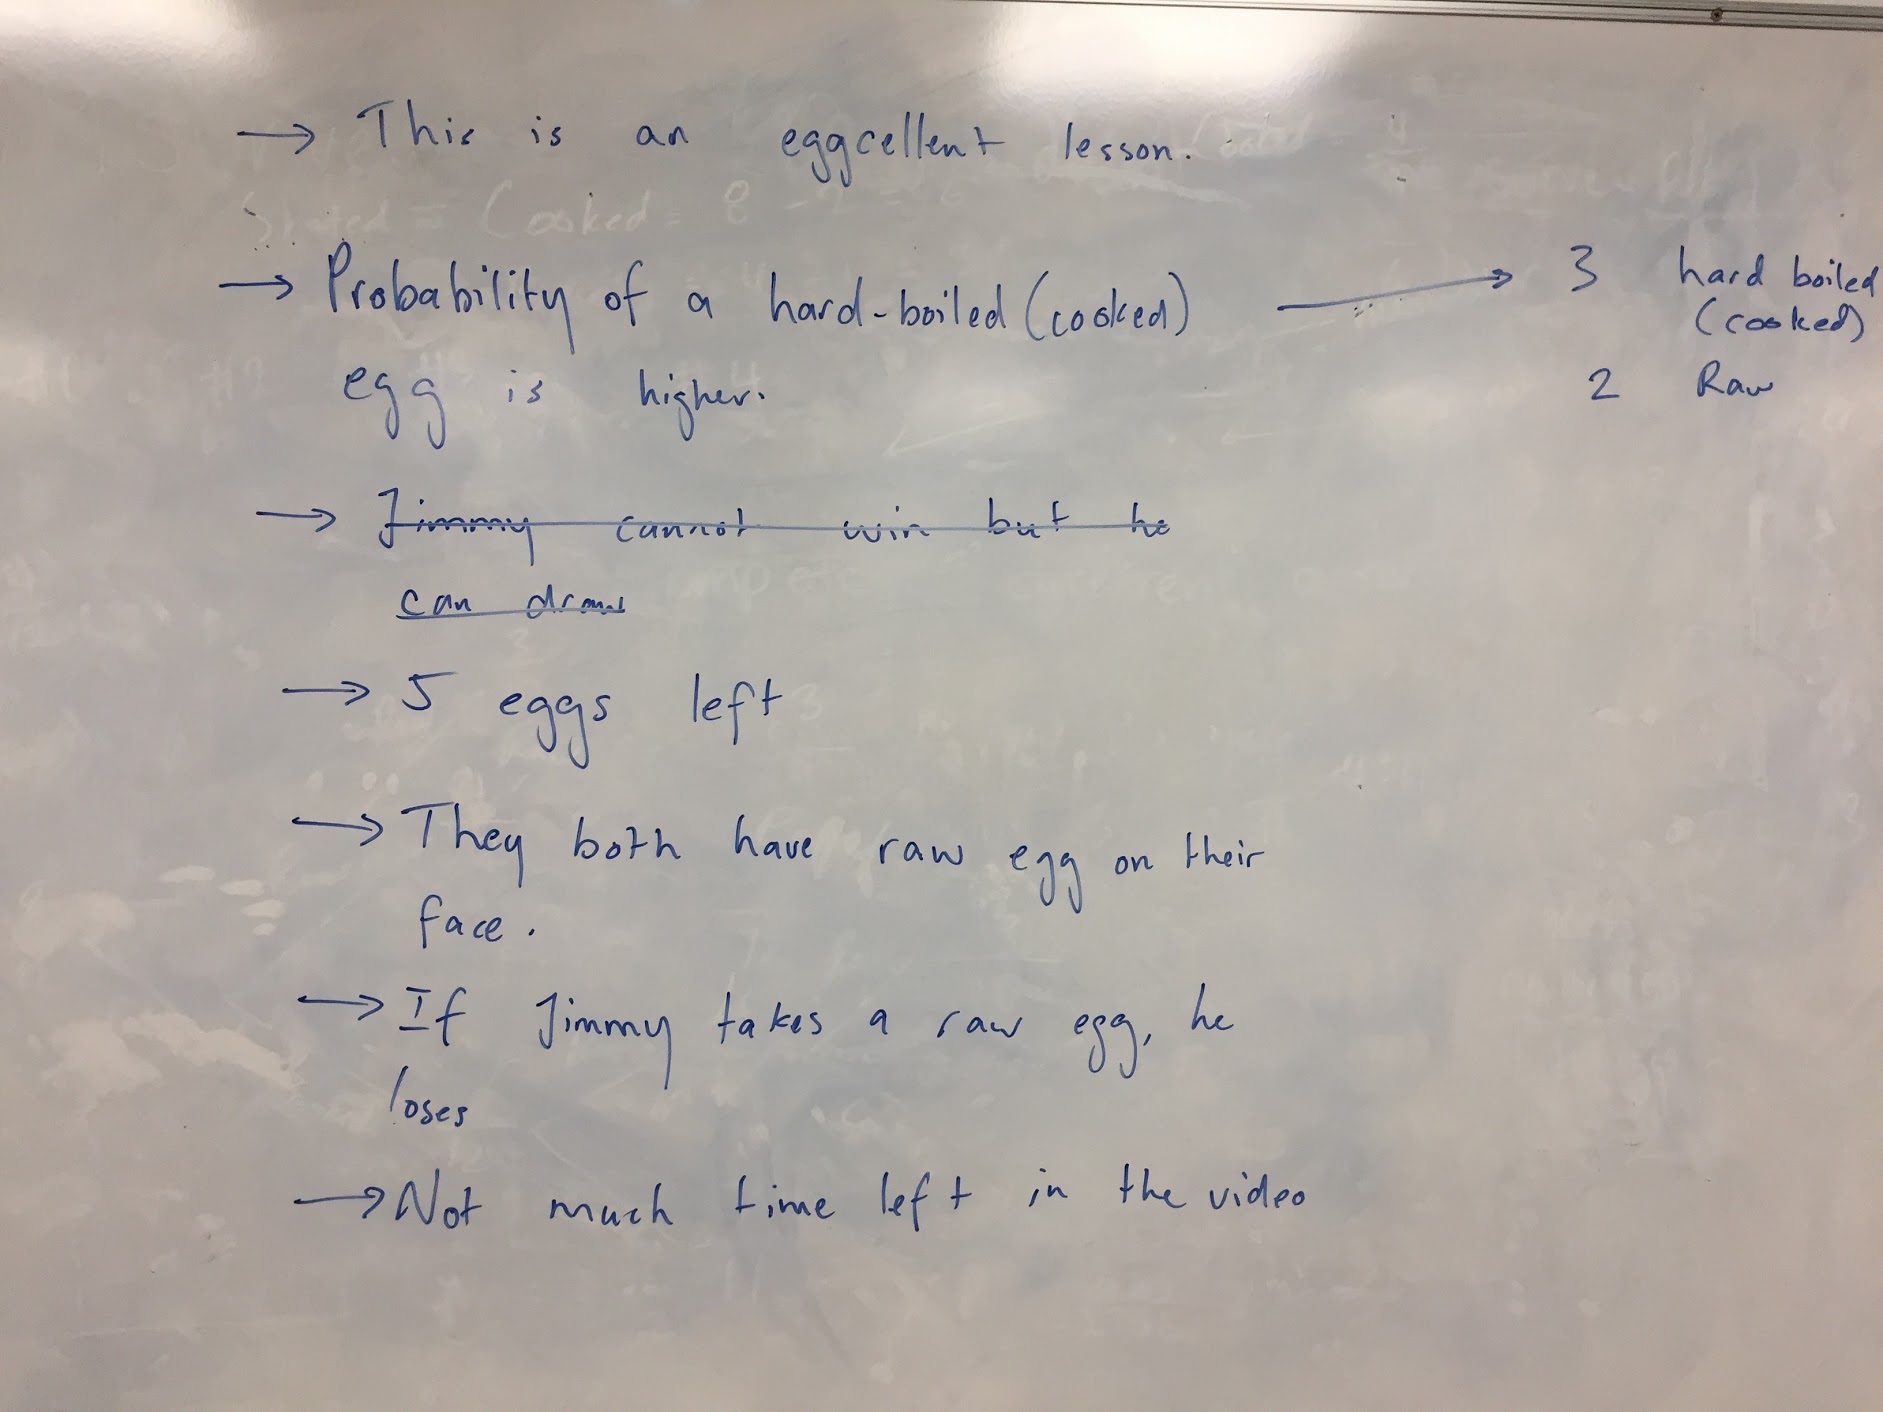 → This is an eggcellent lesson.
→ Probability of a hard-boiled (cooked) → 3 hard boiled
(cooked)
egg is higher. 2 Raw
→ Jimmy cannot win but he
can draw
→ 5 eggs left
→ They both have raw egg on their
face.
→ If Jimmy takes a raw egg, he
loses
→ Not much time left in the video